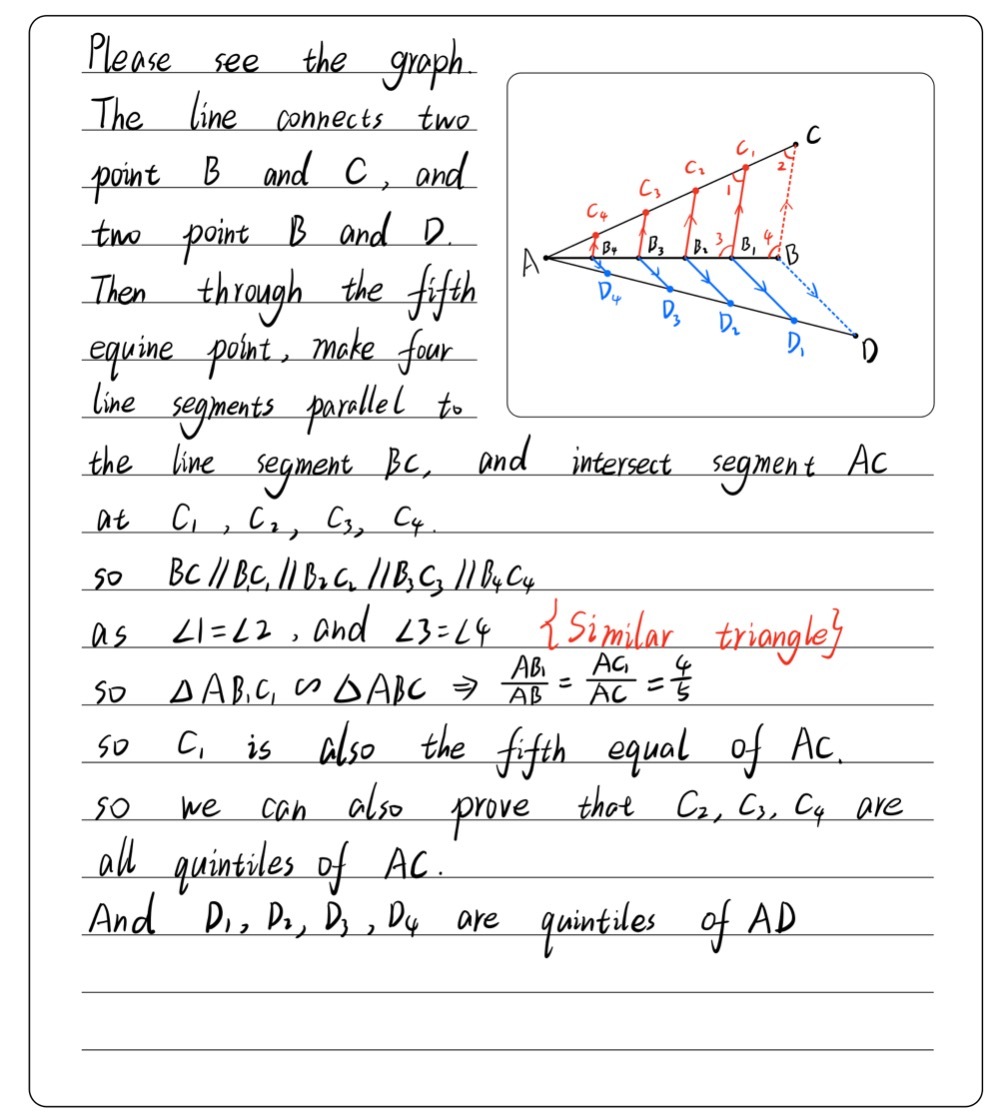 Please see the graph.
The line connects two
point B and C, and
two point B and D.
Then through the fifth
equine point, make four
line segments parallel to
the line segment BC, and intersect segment AC
at C₁, C₂, C₃, C₄.
so BC//B₁C₁//B₂C₂//B₃C₃//B₄C₄
as ∠1=∠2, and ∠3=∠4 {Similar triangle}
so △AB₁C₁ ∽ △ABC ⇒ AB₁/AB = AC₁/AC = 4/5
so C₁ is also the fifth equal of AC.
so we can also prove that C₂, C₃, C₄ are
all quintiles of AC.
And D₁, D₂, D₃, D₄ are quintiles of AD
C
C₁ 2
C₂ 1
C₃
C₄
A B₄ B₃ B₂ 3 B₁ 4 B
D₄
D₃
D₂
D₁ D